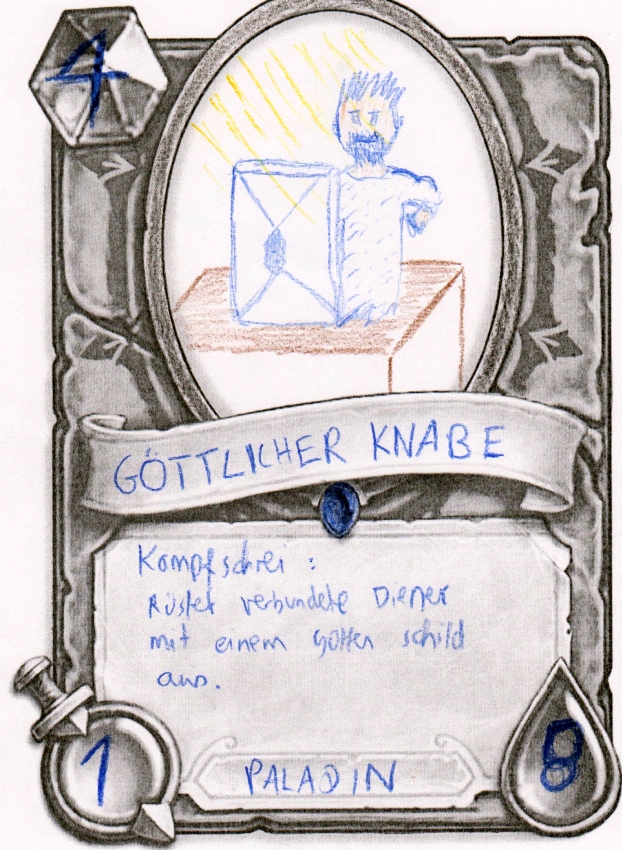 4
GÖTTLICHER KNABE
Kampfschrei :
Rüstet verbündete Diener
mit einem Götter schild
aus.
1
PALADIN
8